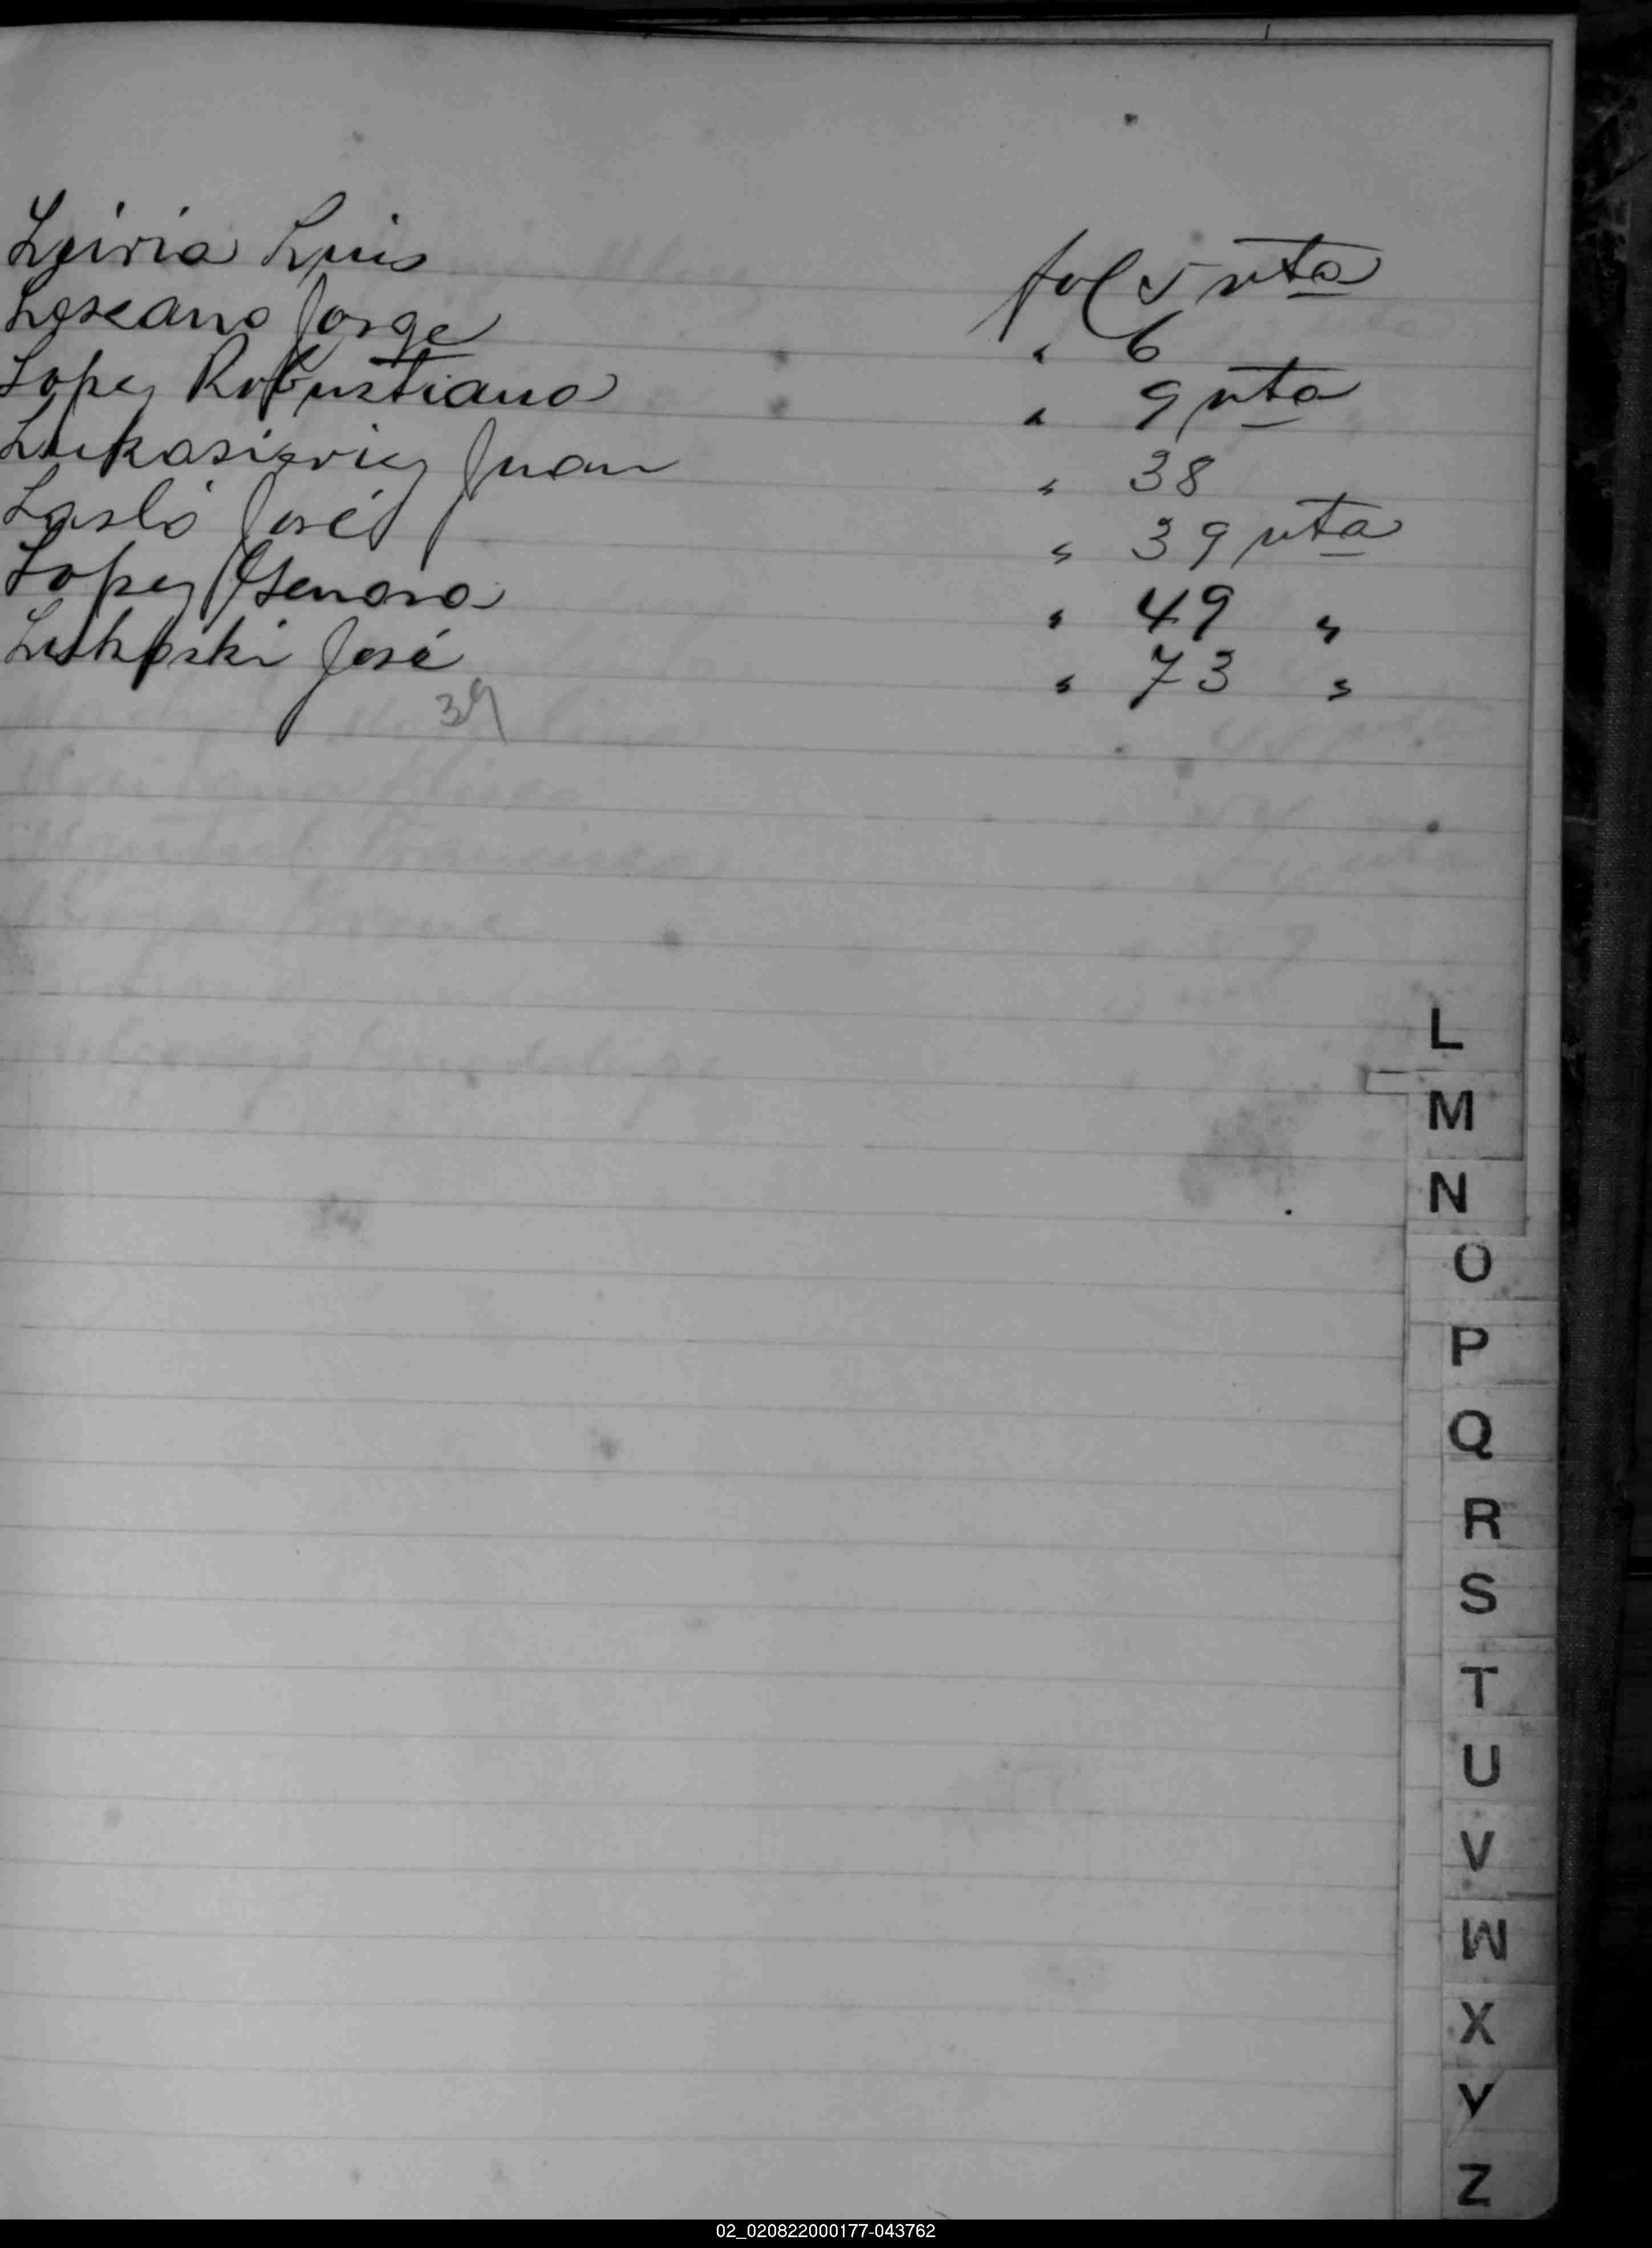 Leiria Luis fol 5 vta
Lescano Jorge " 6
Lopez Robustiano " 9 vta
Lukasievicz Juan " 38
Lasló José " 39 vta
Lopez Genara " 49 "
José " 73 "
39
L
M
N
O
P
Q
R
S
T
U
V
W
X
Y
Z
02_020822000177-043762